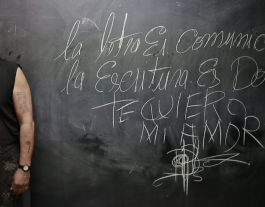 la letra Es comunic
la Escritura Es Do
TE QUIERO
MI AMOR